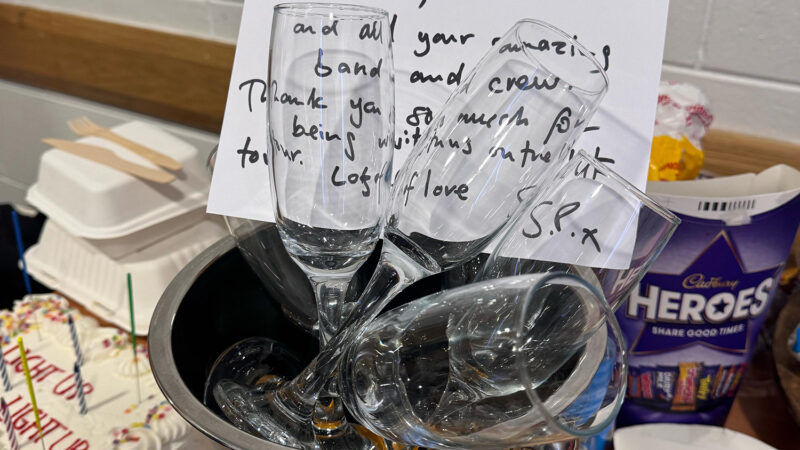 and all your amazing
band and crew.
Thank you so much for
being with us on the
tour. Lots of love
S.P. x
LIGHT UP
LIGHT UP
Cadbury
HEROES
SHARE GOOD TIMES